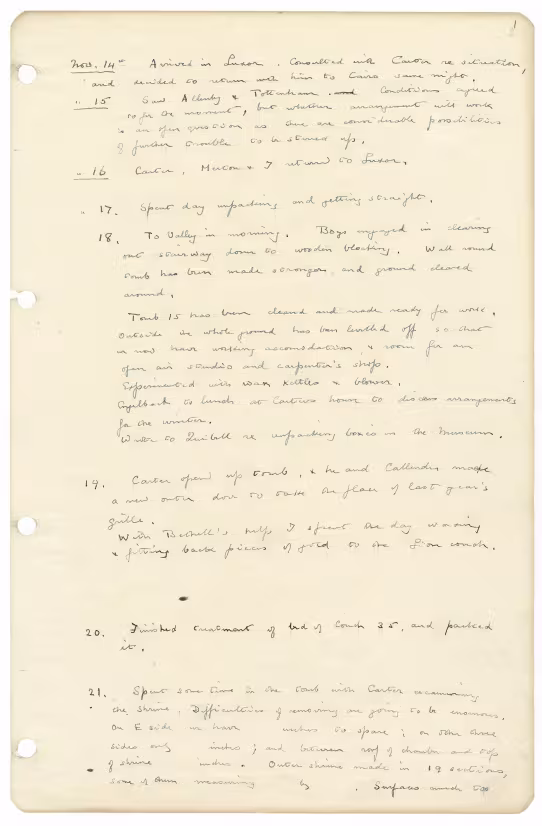 1
Nov. 14th Arrived in Luxor. Consulted with Carter re situation,
and decided to return with him to Cairo same night.
" 15 Saw Allenby & Tottenham. Conditions agreed
to for the moment, but whether arrangement will work
is an open question as there are considerable possibilities
of further trouble to be stirred up.
" 16 Carter, Merton & I returned to Luxor.
" 17. Spent day unpacking and getting straight.
18. To Valley in morning. Boys engaged in clearing
out stairway down to wooden blocking. Wall round
tomb has been made stronger, and ground cleared
around.
Tomb 15 has been cleaned and made ready for work.
Outside the whole ground has been levelled off so that
we now have working accomodation & room for an
open air studio and carpenter's shop.
Experimented with wax kettles & blower.
Engelbach to lunch at Carter's house to discuss arrangements
for the winter.
Wrote to Quibell re unpacking boxes in the Museum.
19. Carter opened up tomb, & he and Callender made
a new outer door to take the place of last year's
grille.
With Bethell's help I spent the day waxing
& fitting back pieces of gold to the Lion couch.
20. Finished treatment of bed of Couch 35, and packed
it.
21. Spent some time in the tomb with Carter examining
the shrine. Difficulties of removing are going to be enormous.
On E side we have inches to spare; on other three
sides only inches; and between roof of chamber and top
of shrine inches. Outer shrine made in 19 sections,
some of them measuring by . Surfaces much too